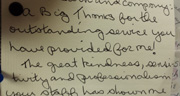 and company.
a Big Thanks for the
outstanding service you
have provided for me!
The great kindness, sensi
tivity and professionalism
your staff has shown me